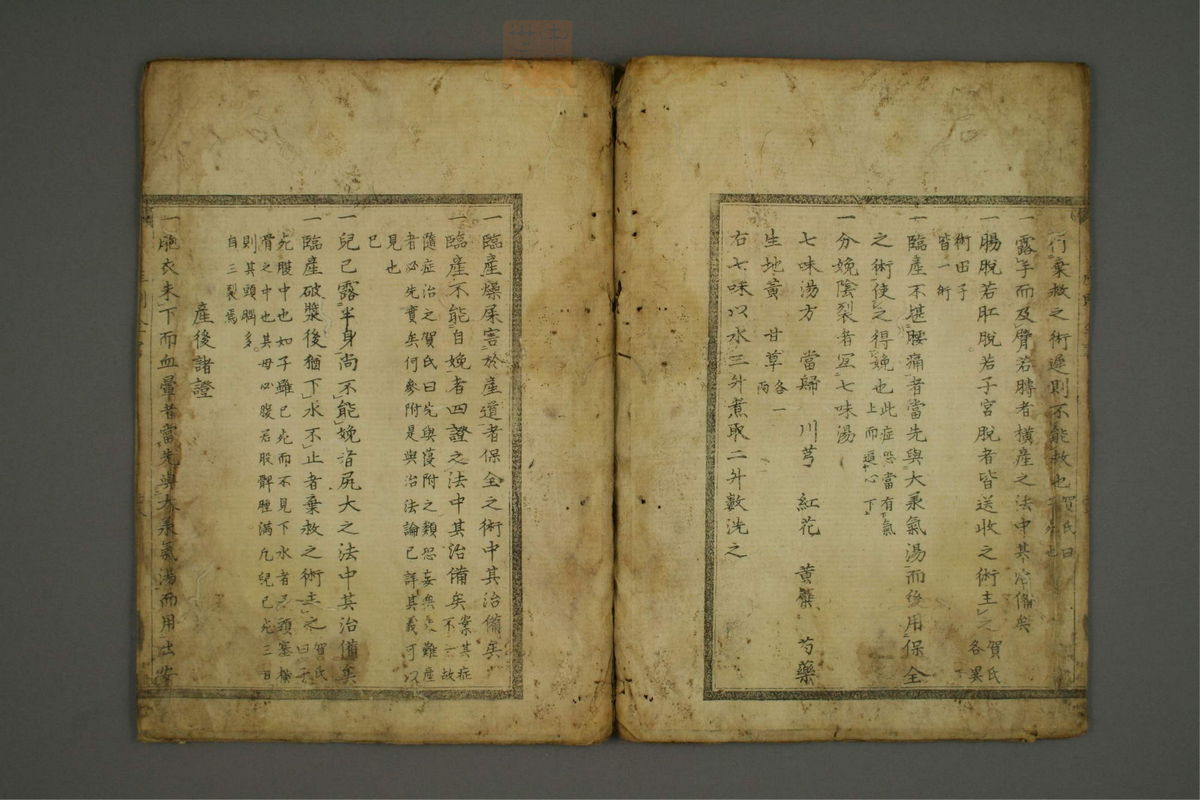 行棄救之術遲則不能救也 賀氏曰
一露手而及臂若膊者橫産之法中其治備矣
一腸脱若肛脱若子宮脱者皆送收之術主之 賀氏 各異
術田子
皆一術
一臨産不堪腰痛者當先與大承氣湯而後用保全
之術使之得娩也 此症恐當有氣
上而逼心下
一分娩陰裂者宜七味湯
七味湯方 當歸 川芎 紅花 黄蘗 芍藥
生地黄 甘草 各一
兩
右七味以水三升煮取二升數洗之
一臨産燥屎害於産道者保全之術中其治備矣
一臨産不能自娩者四證之法中其治備矣 案其症
不一故
隨症治之賀氏曰先與蔆附之類恐妄矣 難産
者必先實矣何參附是與治法論已詳其義可以
見也
已
一兒已露半身尚不能娩者尻大之法中其治備矣
一臨産破漿後猶下水不止者棄救之術主之 賀氏
曰子
死腹中也如子雖已死而不見下水者 頭塞横
骨之中也其母必腹若股髀腫滿凡兒已死三日
則其頭 多
自三裂焉
産後諸證
一胞衣未下而血暈者當先與大承氣湯而用出